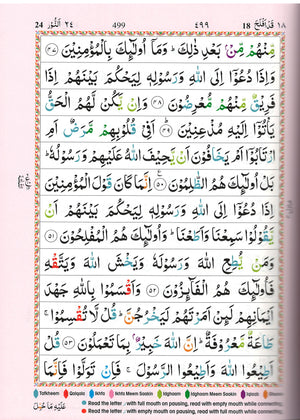 24 اَلنُّوْر ٢٤ 499 ٤٩٩ 18 قَدْ اَفْلَحَ ١٨
مِّنْهُمْ مِّنْۢ بَعْدِ ذٰلِكَ ؕ وَمَاۤ اُولٰٓئِكَ بِالْمُؤْمِنِيْنَ ٤٧
وَاِذَا دُعُوْۤا اِلَى اللّٰهِ وَرَسُوْلِهٖ لِيَحْكُمَ بَيْنَهُمْ اِذَا
فَرِيْقٌ مِّنْهُمْ مُّعْرِضُوْنَ ٤٨ وَاِنْ يَّكُنْ لَّهُمُ الْحَقُّ
يَاْتُوْۤا اِلَيْهِ مُذْعِنِيْنَ ٤٩ اَفِيْ قُلُوْبِهِمْ مَّرَضٌ اَمِ
ارْتَابُوْۤا اَمْ يَخَافُوْنَ اَنْ يَّحِيْفَ اللّٰهُ عَلَيْهِمْ وَرَسُوْلُهٗ ؕ
بَلْ اُولٰٓئِكَ هُمُ الظّٰلِمُوْنَ ٥٠ اِنَّمَا كَانَ قَوْلَ الْمُؤْمِنِيْنَ
اِذَا دُعُوْۤا اِلَى اللّٰهِ وَرَسُوْلِهٖ لِيَحْكُمَ بَيْنَهُمْ اَنْ
يَّقُوْلُوْا سَمِعْنَا وَاَطَعْنَا ؕ وَاُولٰٓئِكَ هُمُ الْمُفْلِحُوْنَ ٥١
وَمَنْ يُّطِعِ اللّٰهَ وَرَسُوْلَهٗ وَيَخْشَ اللّٰهَ وَيَتَّقْهِ
فَاُولٰٓئِكَ هُمُ الْفَآئِزُوْنَ ٥٢ وَاَقْسَمُوْا بِاللّٰهِ جَهْدَ
اَيْمَانِهِمْ لَئِنْ اَمَرْتَهُمْ لَيَخْرُجُنَّ ؕ قُلْ لَّا تُقْسِمُوْا ۚ
طَاعَةٌ مَّعْرُوْفَةٌ ؕ اِنَّ اللّٰهَ خَبِيْرٌۢ بِمَا تَعْمَلُوْنَ ٥٣ قُلْ
اَطِيْعُوا اللّٰهَ وَاَطِيْعُوا الرَّسُوْلَ ۚ فَاِنْ تَوَلَّوْا فَاِنَّمَا
Tafkheem Qalqala Ikhfa Ikhfa Meem Saakin Idghaam Idghaam Meem Saakin
Read the letter . with full mouth on pausing, read with empty mouth while connecting.
Read the letter . with empty mouth on pausing, read with full mouth while connecting.
عَلَيْهِ مَا حُمِّلَ